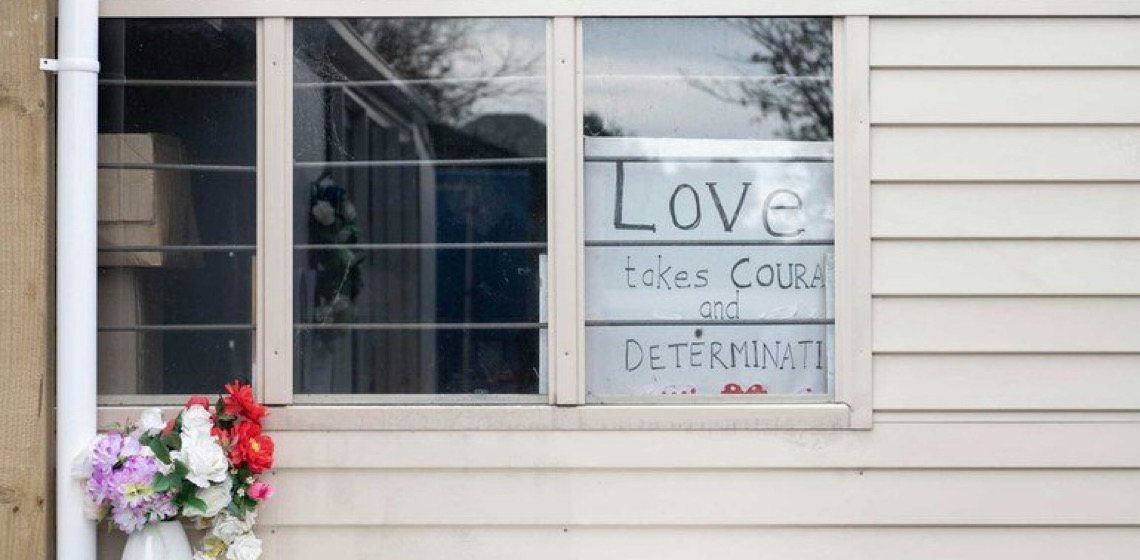 Love
takes COURA
and
DETERMINATI